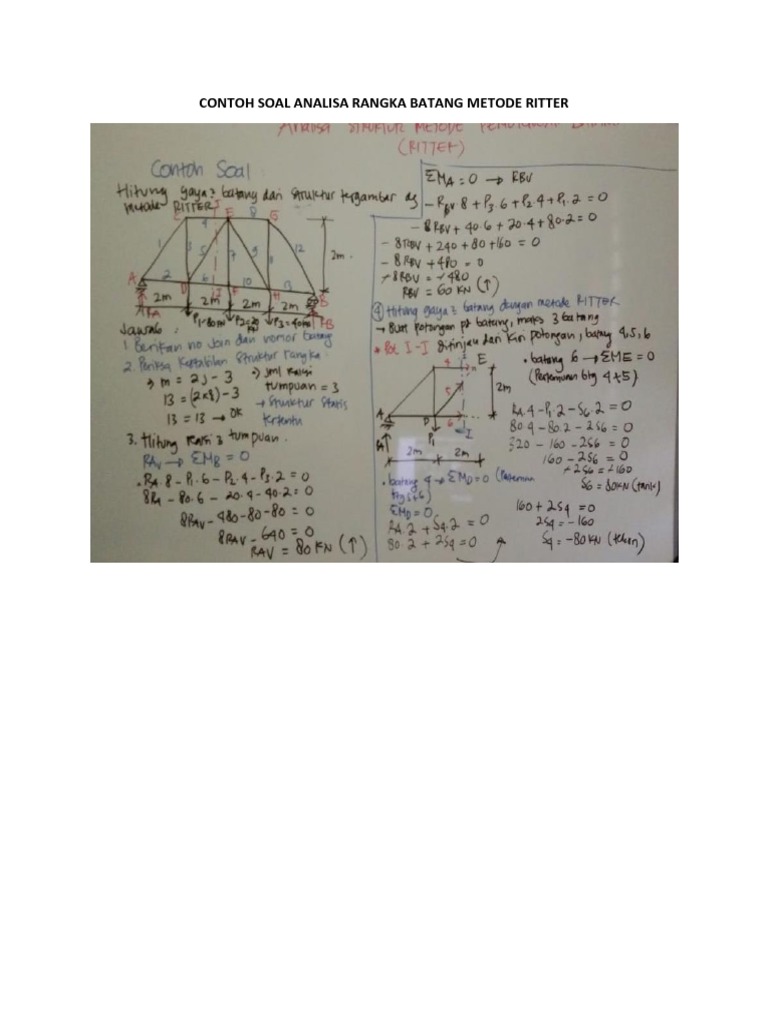 CONTOH SOAL ANALISA RANGKA BATANG METODE RITTER
Analisa STRUKTUR METODE
(RITTER)
Contoh Soal
Hitung gaya² batang dari struktur tergambar dg
metode RITTER
I
C 4 E 8 G
1 3 5 7 9 11 12
2m
A 2 D 6 I F 10 H 13 B
2m 2m 2m 2m
RA P1=80KN P2=20KN P3=40KN RB
Jawab :
1. Berikan no Join dan nomor batang
2. Periksa Kestabilan struktur rangka
→ m = 2j - 3
13 = (2x8) - 3
13 = 13 → OK
→ jml reaksi
tumpuan = 3
→ struktur statis
tertentu
3. Hitung reaksi² tumpuan.
RAV → ΣMB = 0
• RA.8 - P1.6 - P2.4 - P3.2 = 0
8RA - 80.6 - 20.4 - 40.2 = 0
8RAV - 480 - 80 - 80 = 0
8RAV - 640 = 0
RAV = 80 KN (↑)
ΣMA = 0 → RBV
- RBV 8 + P3.6 + P2.4 + P1.2 = 0
- 8RBV + 40.6 + 20.4 + 80.2 = 0
- 8RBV + 240 + 80 + 160 = 0
- 8RBV + 480 = 0
-8RBV = -480
RBV = 60 KN (↑)
4 Hitung gaya² batang dengan metode RITTER
→ Buat potongan pt batang, maks 3 batang
* Pot I - I ditinjau dari kiri potongan, batang 4,5,6
4 E
5
2m
A D 6
RA P1 I
2m 2m
• batang 6 → ΣME = 0
(Pertemuan btg 4+5)
RA.4 - P1.2 - S6.2 = 0
80.4 - 80.2 - 2S6 = 0
320 - 160 - 2S6 = 0
160 - 2S6 = 0
-2S6 = -160
S6 = 80KN (tarik)
• batang 4 → ΣMD = 0 (Pertemuan
btg 5+6)
ΣMD = 0
RA.2 + S4.2 = 0
80.2 + 2S4 = 0
160 + 2S4 = 0
2S4 = -160
S4 = -80 KN (tekan)